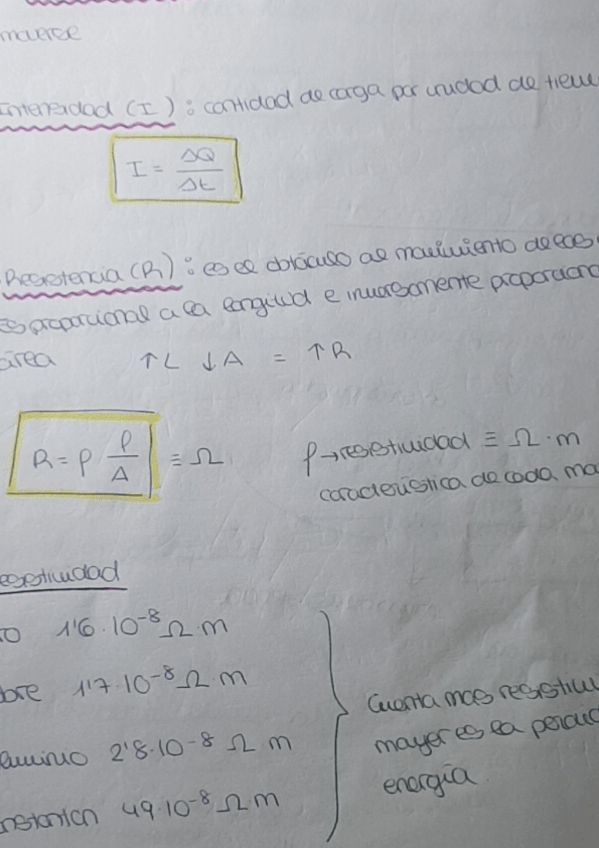 moverse
Intensidad (I): cantidad de carga por unidad de tiem
I = ΔQ/Δt
Resistencia (R): es el obstáculo al movimiento de las
es proporcional a la longitud e inversamente proporciona
área ↑L ↓A = ↑R
R = ρ ρ/A ≡ Ω ρ→resistividad ≡ Ω·m
característica de cada ma
esistividad
ro 1'6·10⁻⁸ Ω·m
bre 1'7·10⁻⁸ Ω·m
luminio 2'8·10⁻⁸ Ω m
nstantan 49·10⁻⁸ Ω·m
Cuanta mas resistiv
mayor es la perdid
energía.